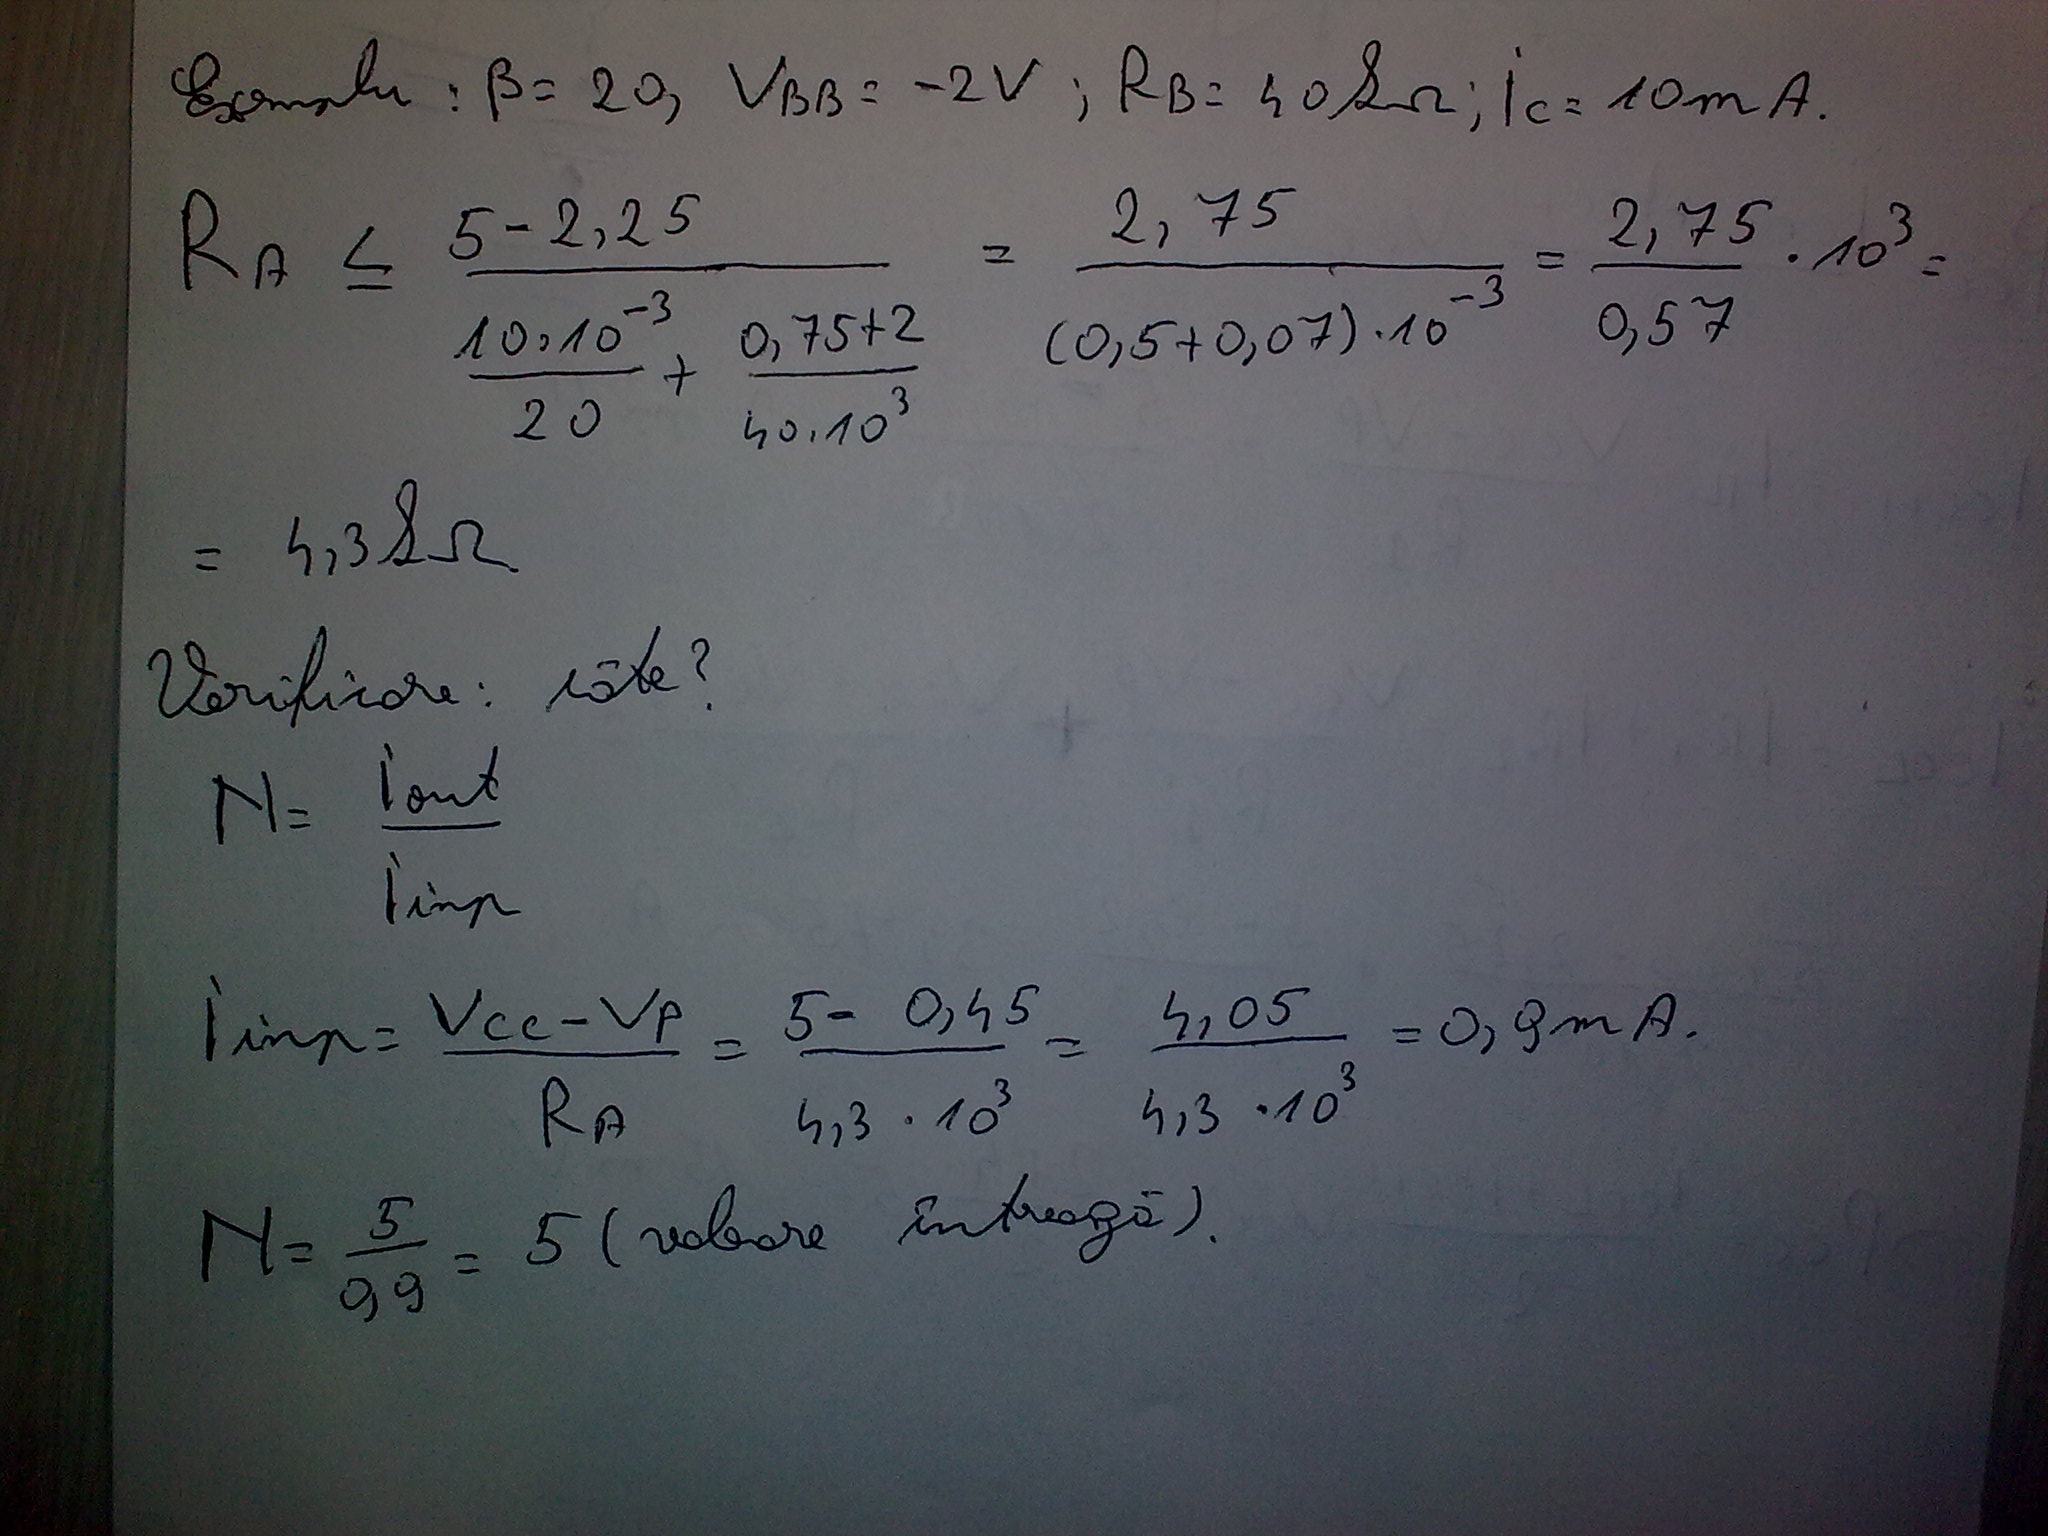 Exemplu : β = 20, VBB = -2V ; RB = 40 kΩ ; Ic = 10 mA.
RA ≤ (5 - 2,25) / (10·10^-3 / 20 + (0,75+2) / (40·10^3)) = 2,75 / ((0,5+0,07)·10^-3) = 2,75 / 0,57 · 10^3 =
= 4,3 kΩ
Verificare: câte?
N = Iout / Iinp
Iinp = (Vcc - VP) / RA = (5 - 0,45) / (4,3 · 10^3) = 4,05 / (4,3 · 10^3) = 0,9 mA.
N = 5 / 0,9 = 5 (valoare întreagă).